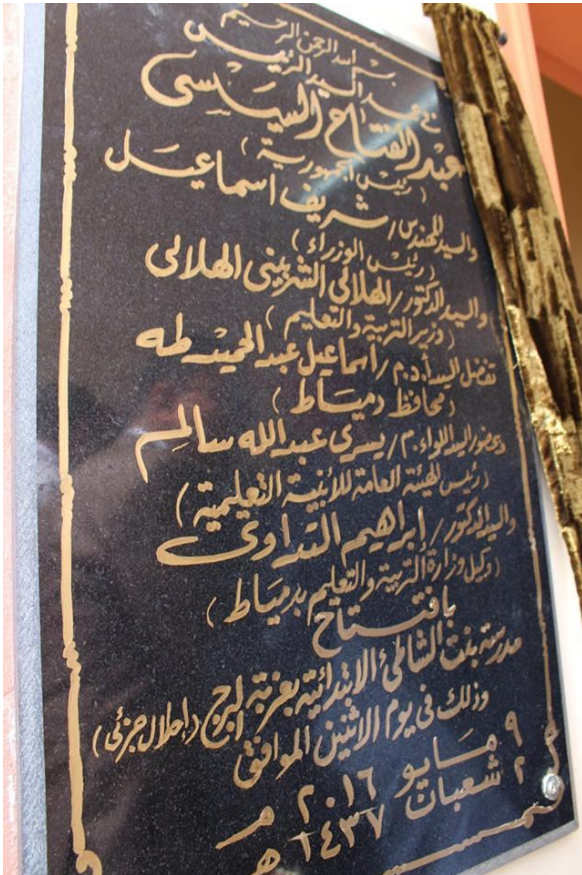 بسم الله الرحمن الرحيم
في عهد السيد الرئيس
عبد الفتاح السيسى
(رئيس الجمهورية)
والسيد المهندس/ شريف اسماعيل
(رئيس الوزراء)
والسيد الدكتور/ الهلالى الشربينى الهلالى
(وزير التربية والتعليم)
تفضل السيد أ.د.م/ اسماعيل عبد الحميد طه
(محافظ دمياط)
وبحضور السيد اللواء.م/ يسرى عبد الله سالم
(رئيس الهيئة العامة للأبنية التعليمية)
والسيد الدكتور/ إبراهيم التداوى
(وكيل وزارة التربية والتعليم بدمياط)
بافتتاح
مدرسة بنت الشاطئ الابتدائية بعزبة البرج (احلال جزئى)
وذلك فى يوم الاثنين الموافق
٩ مايو ٢٠١٦ م
٢ شعبان ١٤٣٧ هـ